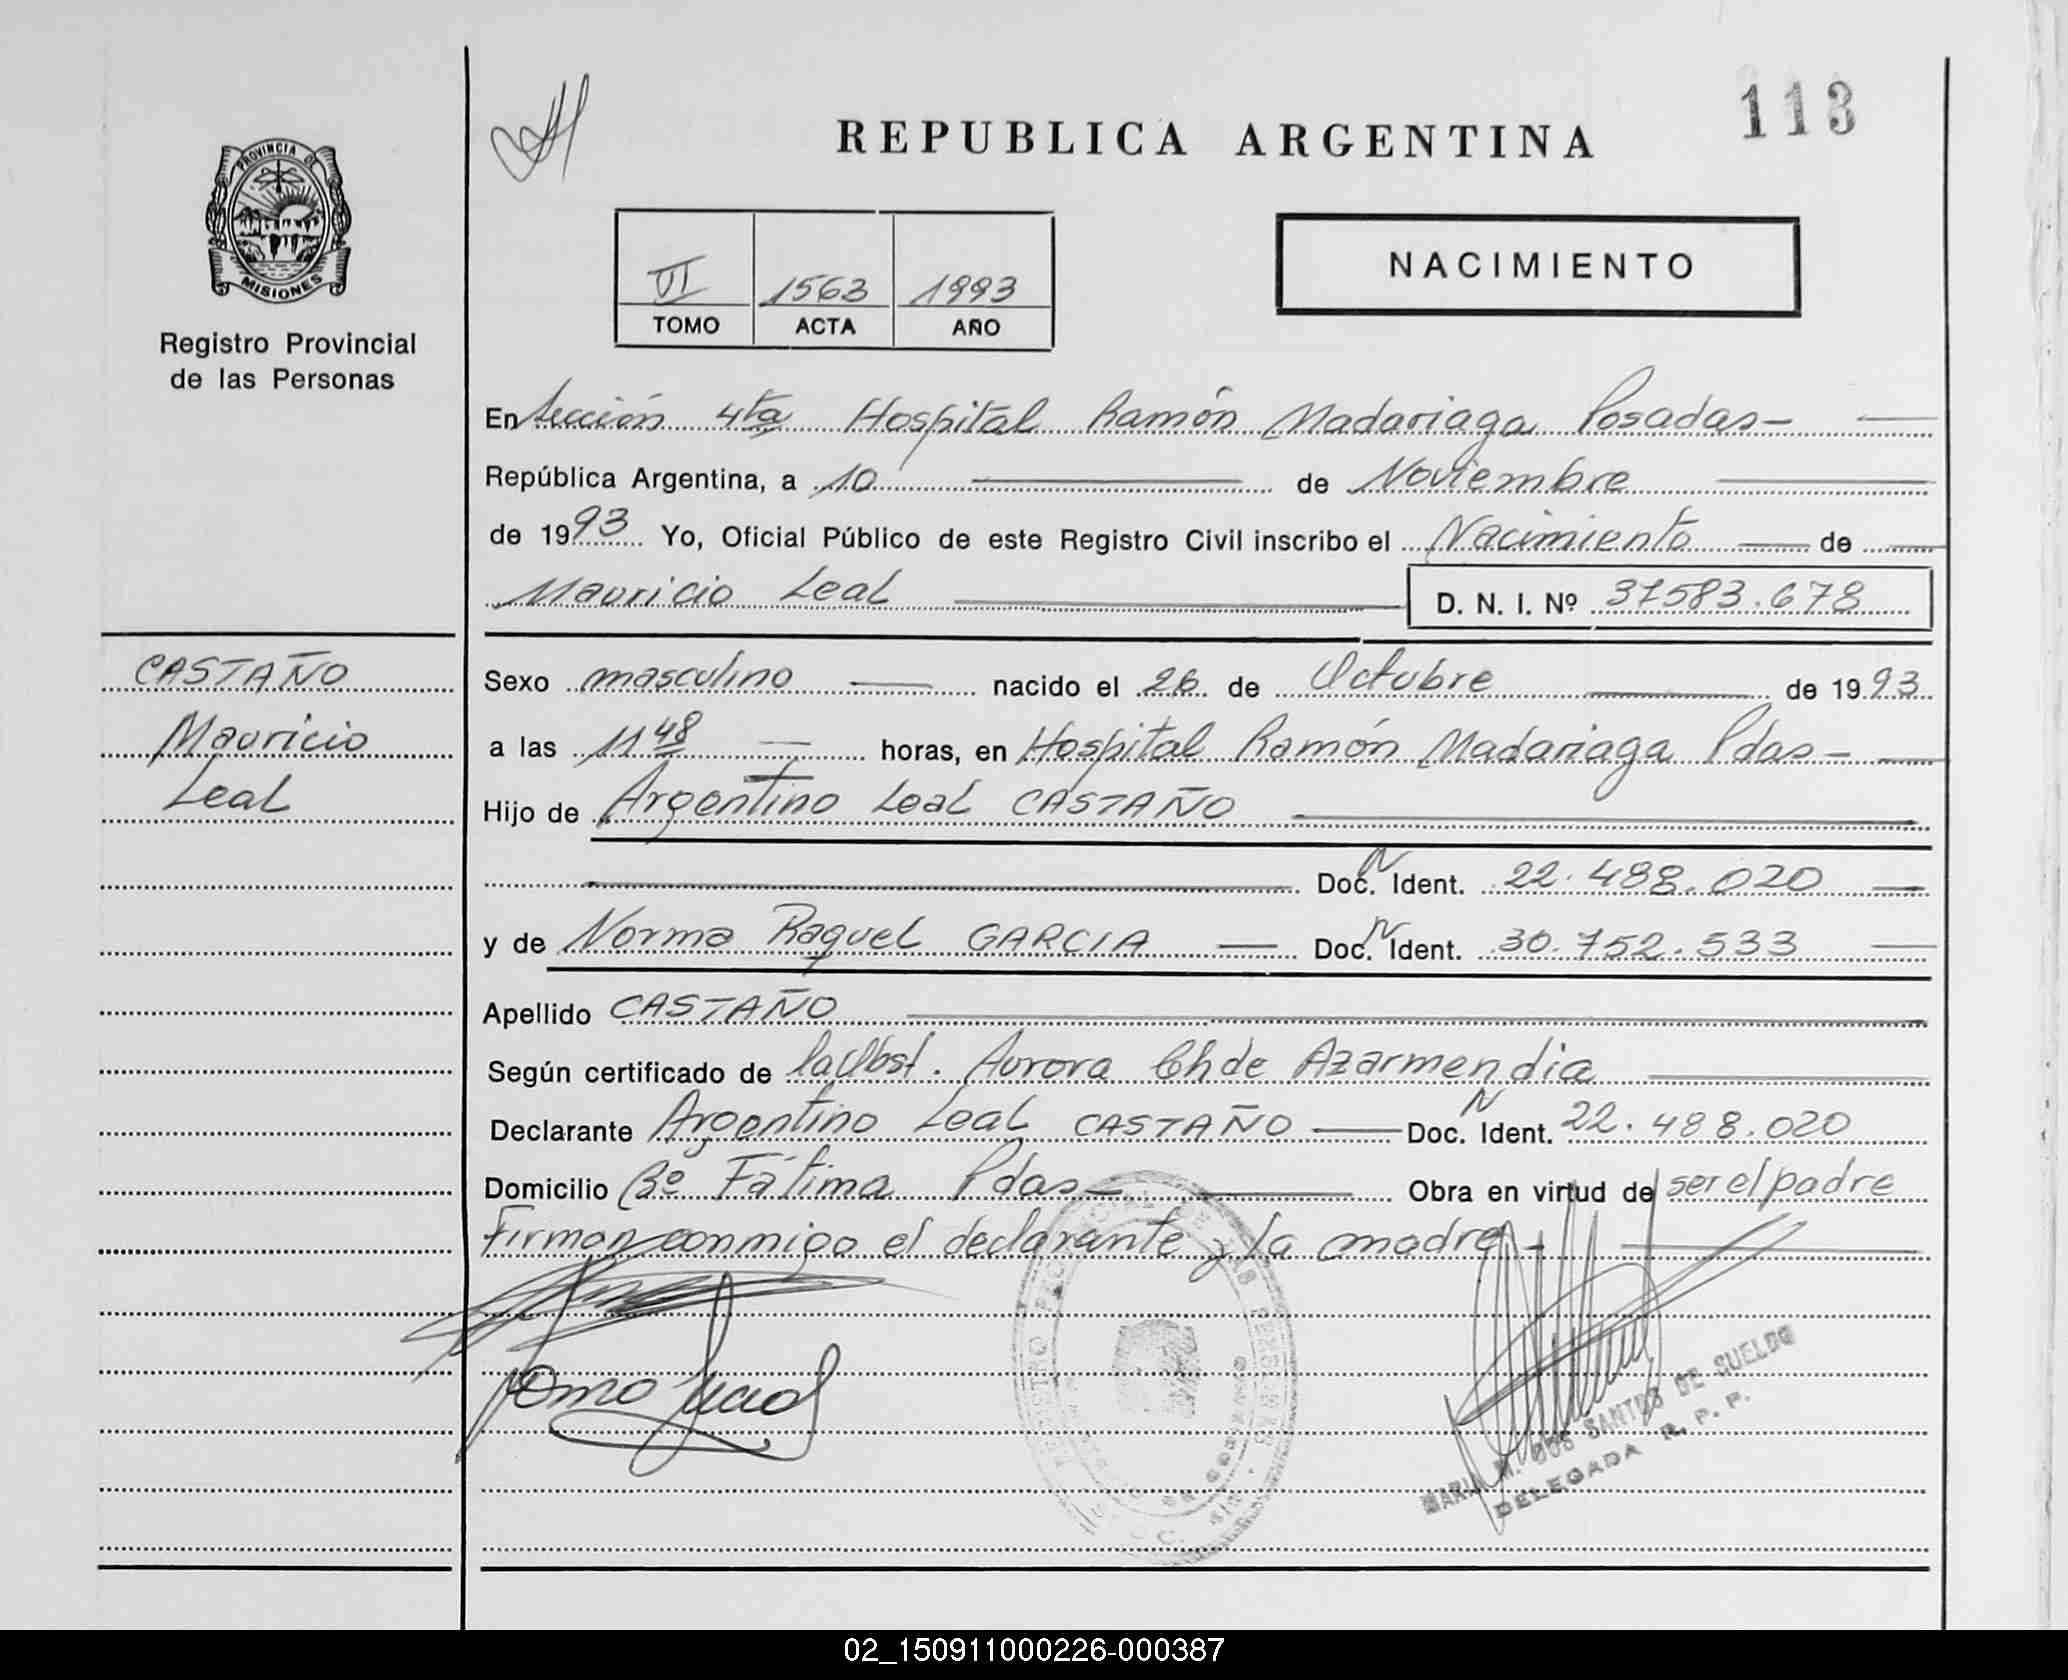 113
REPUBLICA ARGENTINA
PROVINCIA DE
MISIONES
Registro Provincial
de las Personas
VI 1563 1993
TOMO ACTA AÑO
NACIMIENTO
En Sección 4ta Hospital Ramón Madariaga Posadas-
República Argentina, a 10 de Noviembre
de 1993 Yo, Oficial Público de este Registro Civil inscribo el Nacimiento de
Mauricio Leal D. N. I. Nº 37583.678
CASTAÑO
Mauricio
Leal
Sexo masculino nacido el 26 de Octubre de 1993
a las 11 48 horas, en Hospital Ramón Madariaga Pdas-
Hijo de Argentino Leal CASTAÑO
Doc. N Ident. 22.488.020
y de Norma Raquel GARCIA Doc. N Ident. 30.752.533
Apellido CASTAÑO
Según certificado de la Obst. Aurora Ch de Azarmendia
Declarante Argentino Leal CASTAÑO Doc. N Ident. 22.488.020
Domicilio Bº Fátima Pdas- Obra en virtud de ser el padre
Firman conmigo el declarante y la madre-
REGISTRO PROVINCIAL DE LAS PERSONAS
MARIA M. DOS SANTOS DE SUELDO
DELEGADA R. P. P.
02_150911000226-000387